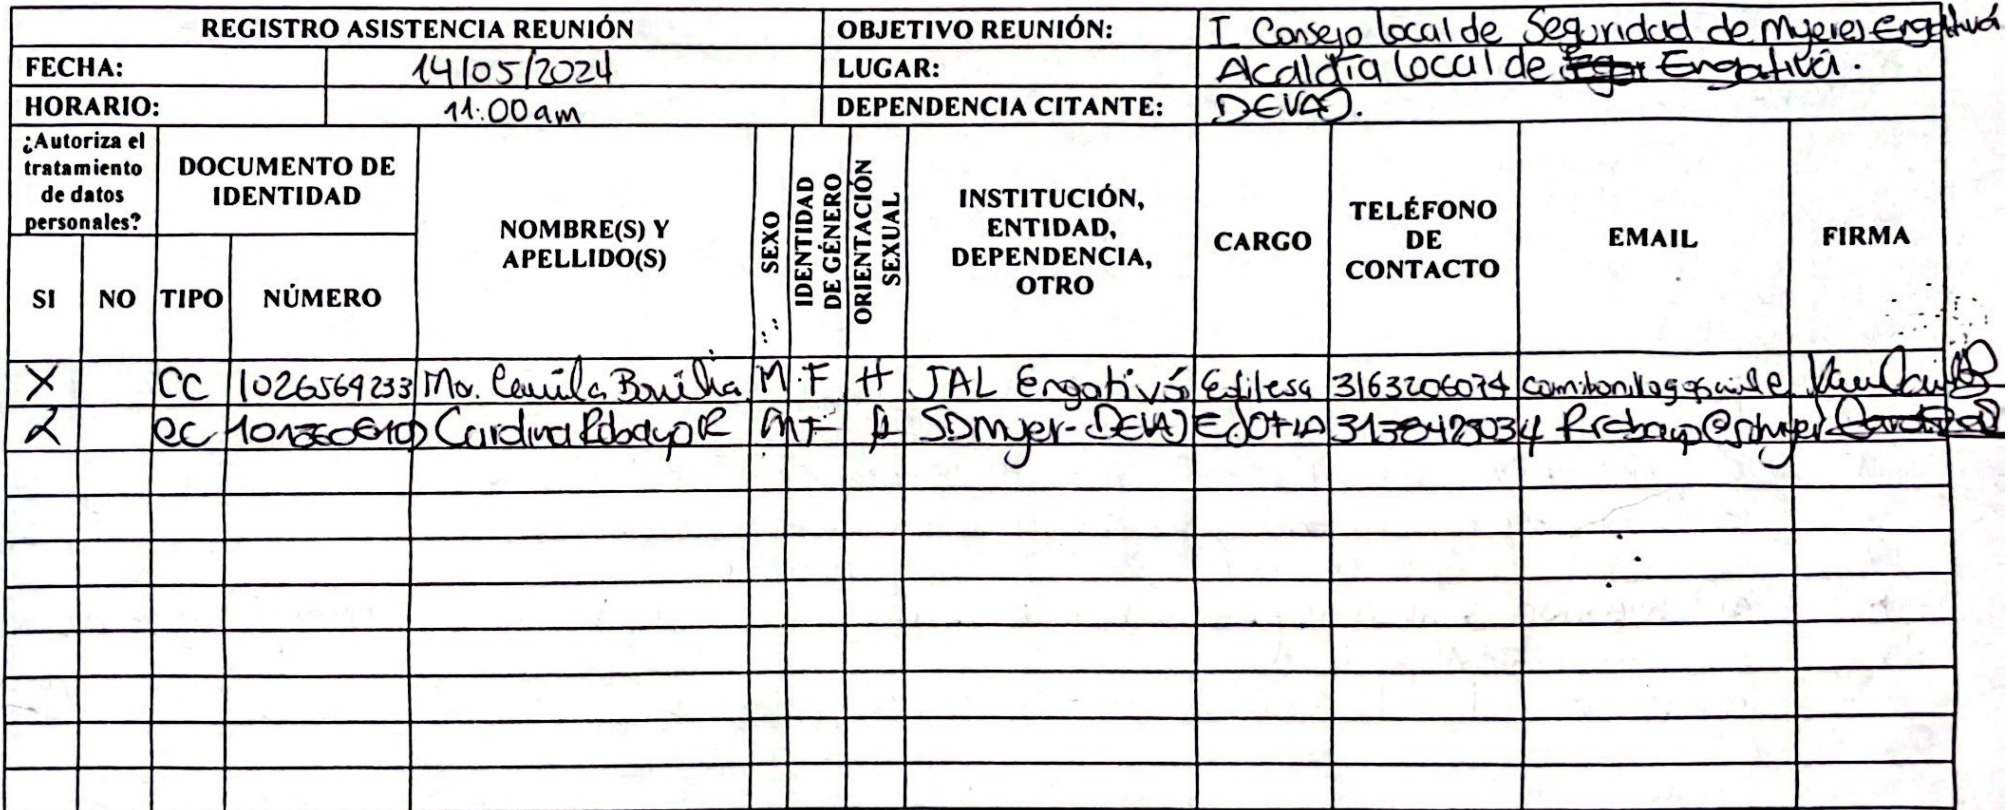 REGISTRO ASISTENCIA REUNIÓN OBJETIVO REUNIÓN: I Consejo local de Seguridad de Mujeres Engativá
FECHA: 14/05/2024 LUGAR: Alcaldía local de Engativá.
HORARIO: 11:00 am DEPENDENCIA CITANTE: DEVAJ.
¿Autoriza el tratamiento de datos personales?
SI NO
DOCUMENTO DE IDENTIDAD
TIPO NÚMERO
NOMBRE(S) Y APELLIDO(S)
SEXO
IDENTIDAD DE GÉNERO
ORIENTACIÓN SEXUAL
INSTITUCIÓN, ENTIDAD, DEPENDENCIA, OTRO
CARGO
TELÉFONO DE CONTACTO
EMAIL
FIRMA
X CC 1026569233 Ma. Camila Bonilla M F H JAL Engativá Edilesa 3163206074
X CC Carolina Robayo R M F H SDMujer-DEVAJ